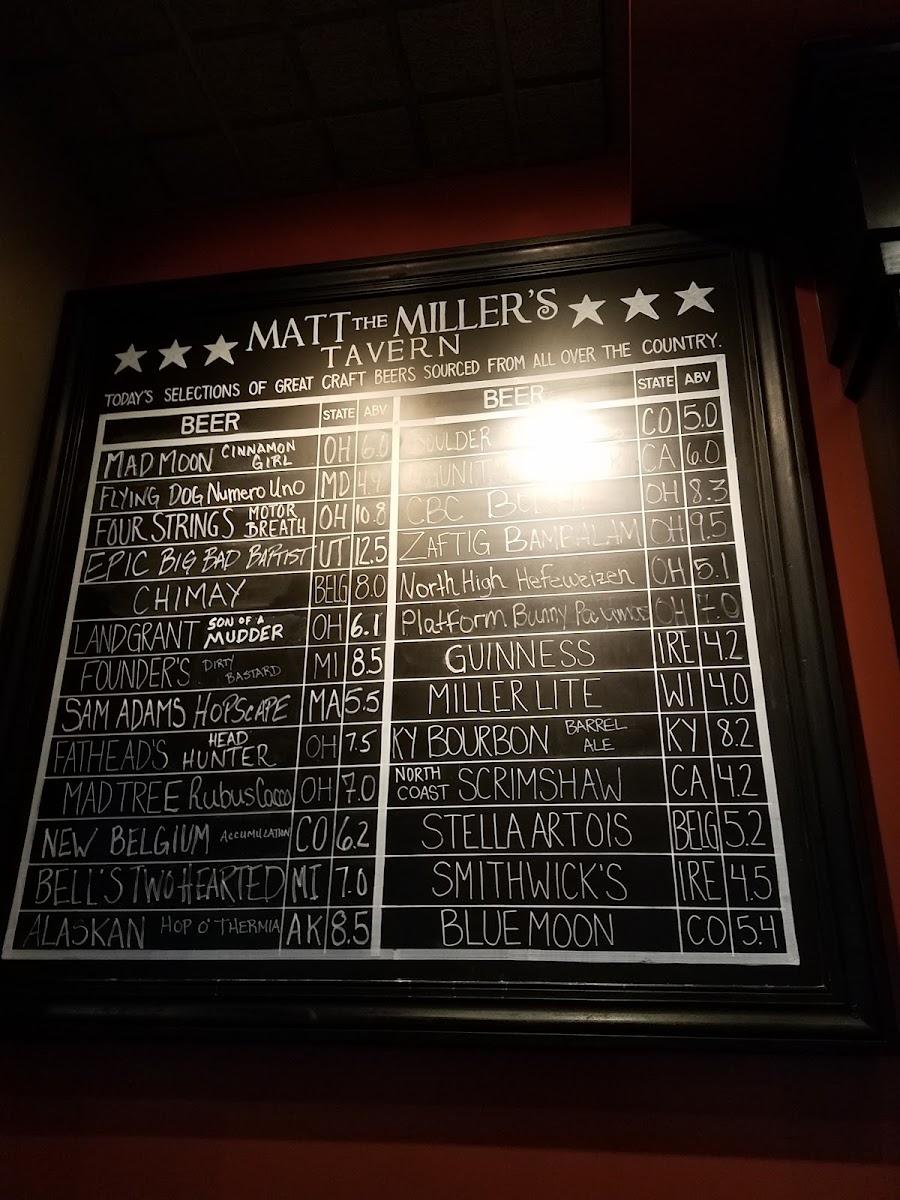 MATT THE MILLER'S
TAVERN
TODAY'S SELECTIONS OF GREAT CRAFT BEERS SOURCED FROM ALL OVER THE COUNTRY.
BEER STATE ABV
MAD MOON CINNAMON GIRL OH 6.0
FLYING DOG Numero Uno MD 4.9
FOUR STRINGS MOTOR BREATH OH 10.8
EPIC BIG BAD BAPTIST UT 12.5
CHIMAY BELG 8.0
LANDGRANT SON OF A MUDDER OH 6.1
FOUNDER'S DIRTY BASTARD MI 8.5
SAM ADAMS HOPSCAPE MA 5.5
FATHEAD'S HEAD HUNTER OH 7.5
MADTREE Rubus Cacao OH 7.0
NEW BELGIUM Accumulation CO 6.2
BELL'S TWO HEARTED MI 7.0
ALASKAN HOP O' THERMIA AK 8.5
BEER STATE ABV
BOULDER CO 5.0
CA 6.0
CBC OH 8.3
ZAFTIG BAMBALAM OH 9.5
North High Hefeweizen OH 5.1
Platform Bunny OH 7.0
GUINNESS IRE 4.2
MILLER LITE WI 4.0
KY BOURBON BARREL ALE KY 8.2
NORTH COAST SCRIMSHAW CA 4.2
STELLA ARTOIS BELG 5.2
SMITHWICK'S IRE 4.5
BLUE MOON CO 5.4